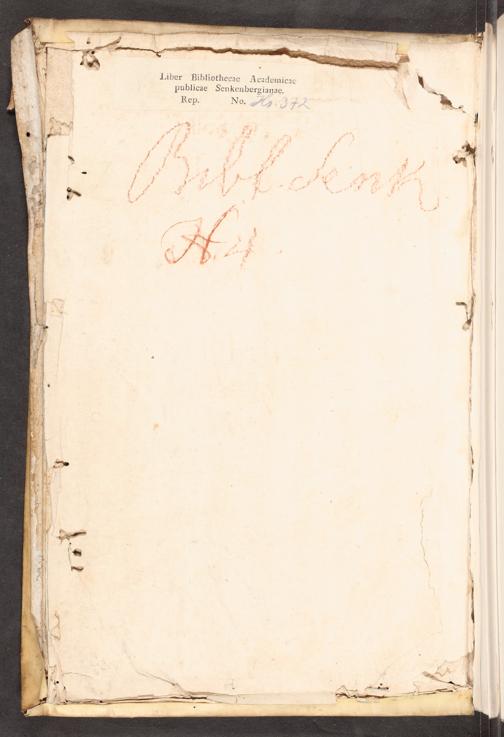 Liber Bibliothecae Academicae
publicae Senkenbergianae.
Rep. No. Hs. 372
Bibl. Senk
H. 4.